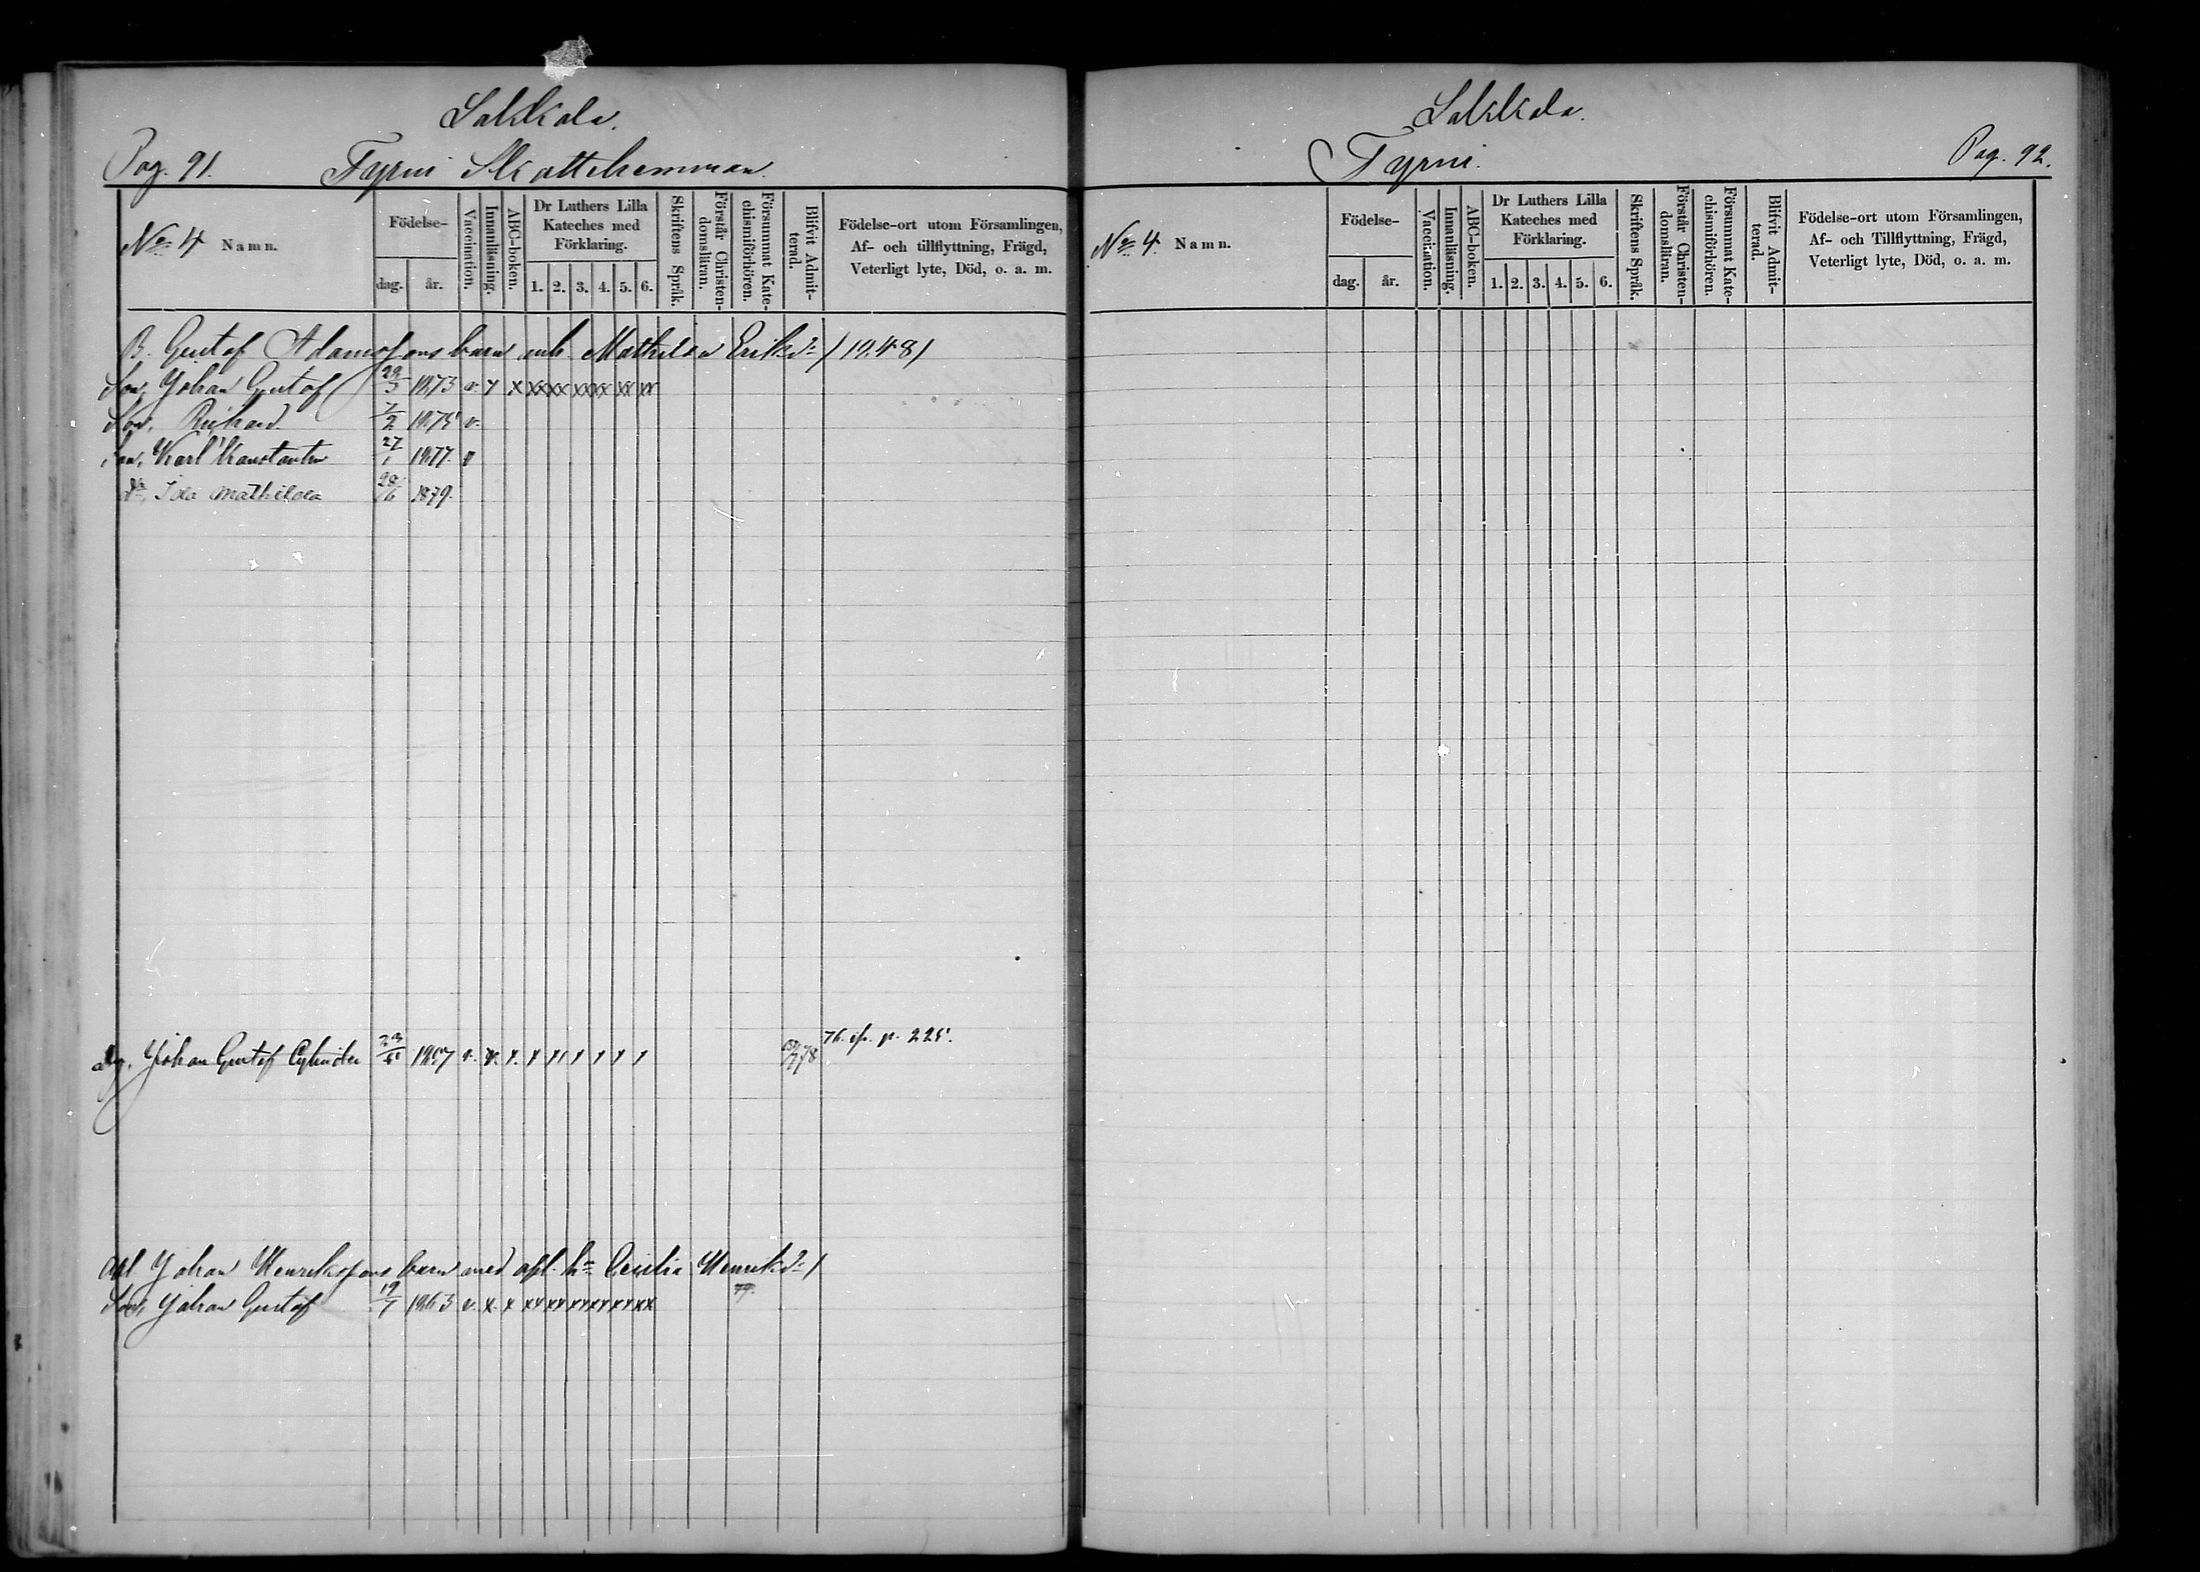 Sakkola.
Pag. 91. Tyrni Skattehemman.
No 4 Namn.
Födelse-
dag. år.
Vaccination.
Innanläsning.
ABC-boken.
Dr Luthers Lilla
Kateches med
Förklaring.
1. 2. 3. 4. 5. 6.
Skriftens Språk.
Förstår Christen-
domsläran.
Försummat Kate-
chismiförhören.
Blifvit Admit-
terad.
Födelse-ort utom Församlingen,
Af- och tillflyttning, Frägd,
Veterligt lyte, Död, o. a. m.
B. Gustaf Adamssons barn mh. Mathilda Eriksdr / 1848 /
Son, Johan Gustaf 29/3 1873 v. x x xx xx xx xx xx xx
Son, Richard 7/2 1875 v.
Son, Karl Konstantin 27/1 1877 v
dr, Ida Mathilda 28/6 1879.
76. ifr. p. 225.
Johan Gustaf Cylinder 23/5 1867 v. v. x. x x x x x x 78
Johan Henrikssons barn med afl. hu Cecilia Henriksdr /
Son, Johan Gustaf 19/7 1863 v. x. x xx xx xx xx xx xx 79.
Sakkola.
Tyrni. Pag. 92.
No 4. Namn.
Födelse-
dag. år.
Vaccination.
Innanläsning.
ABC-boken.
Dr Luthers Lilla
Kateches med
Förklaring.
1. 2. 3. 4. 5. 6.
Skriftens Språk.
Förstår Christen-
domsläran.
Försummat Kate-
chismiförhören.
Blifvit Admit-
terad.
Födelse-ort utom Församlingen,
Af- och Tillflyttning, Frägd,
Veterligt lyte, Död, o. a. m.